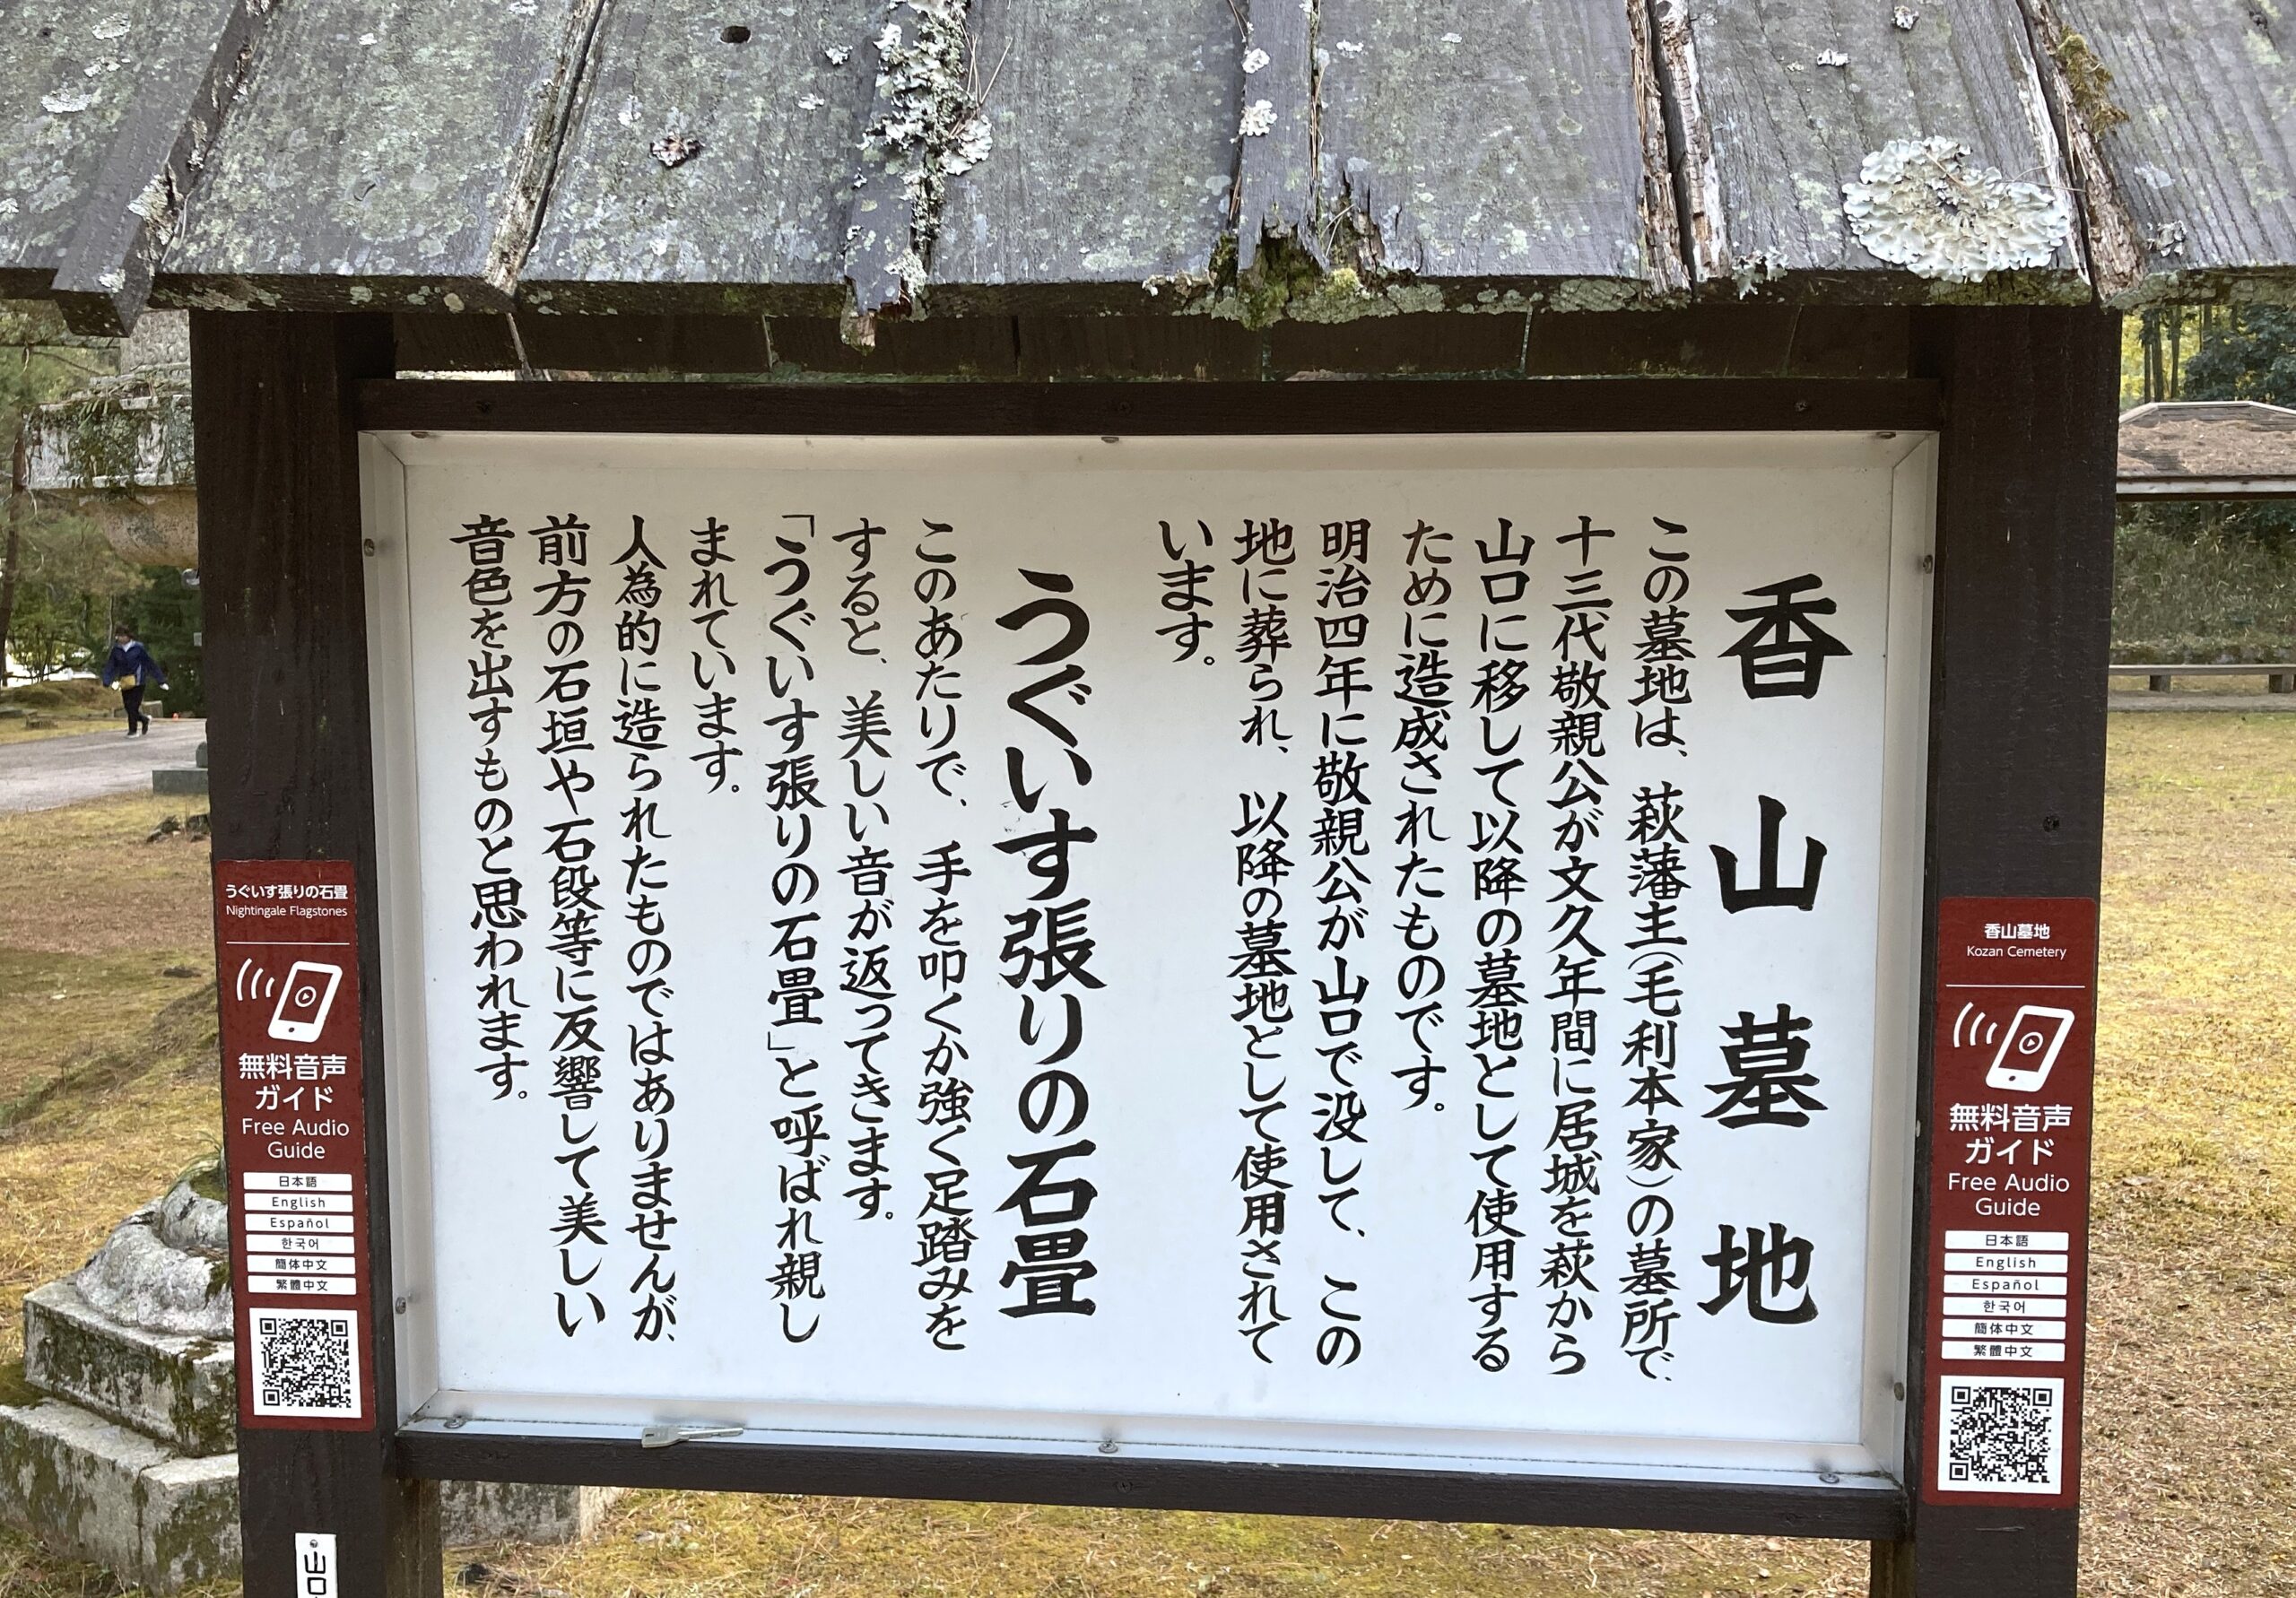 香山墓地
この墓地は、萩藩主(毛利本家)の墓所で、
十三代敬親公が文久年間に居城を萩から
山口に移して以降の墓地として使用する
ために造成されたものです。
明治四年に敬親公が山口で没して、この
地に葬られ、以降の墓地として使用されて
います。
うぐいす張りの石畳
このあたりで、手を叩くか強く足踏みを
すると、美しい音が返ってきます。
「うぐいす張りの石畳」と呼ばれ親し
まれています。
人為的に造られたものではありませんが、
前方の石垣や石段等に反響して美しい
音色を出すものと思われます。
うぐいす張りの石畳
Nightingale Flagstones
無料音声
ガイド
Free Audio
Guide
日本語
English
Español
한국어
簡体中文
繁體中文
山口
香山墓地
Kozan Cemetery
無料音声
ガイド
Free Audio
Guide
日本語
English
Español
한국어
簡体中文
繁體中文